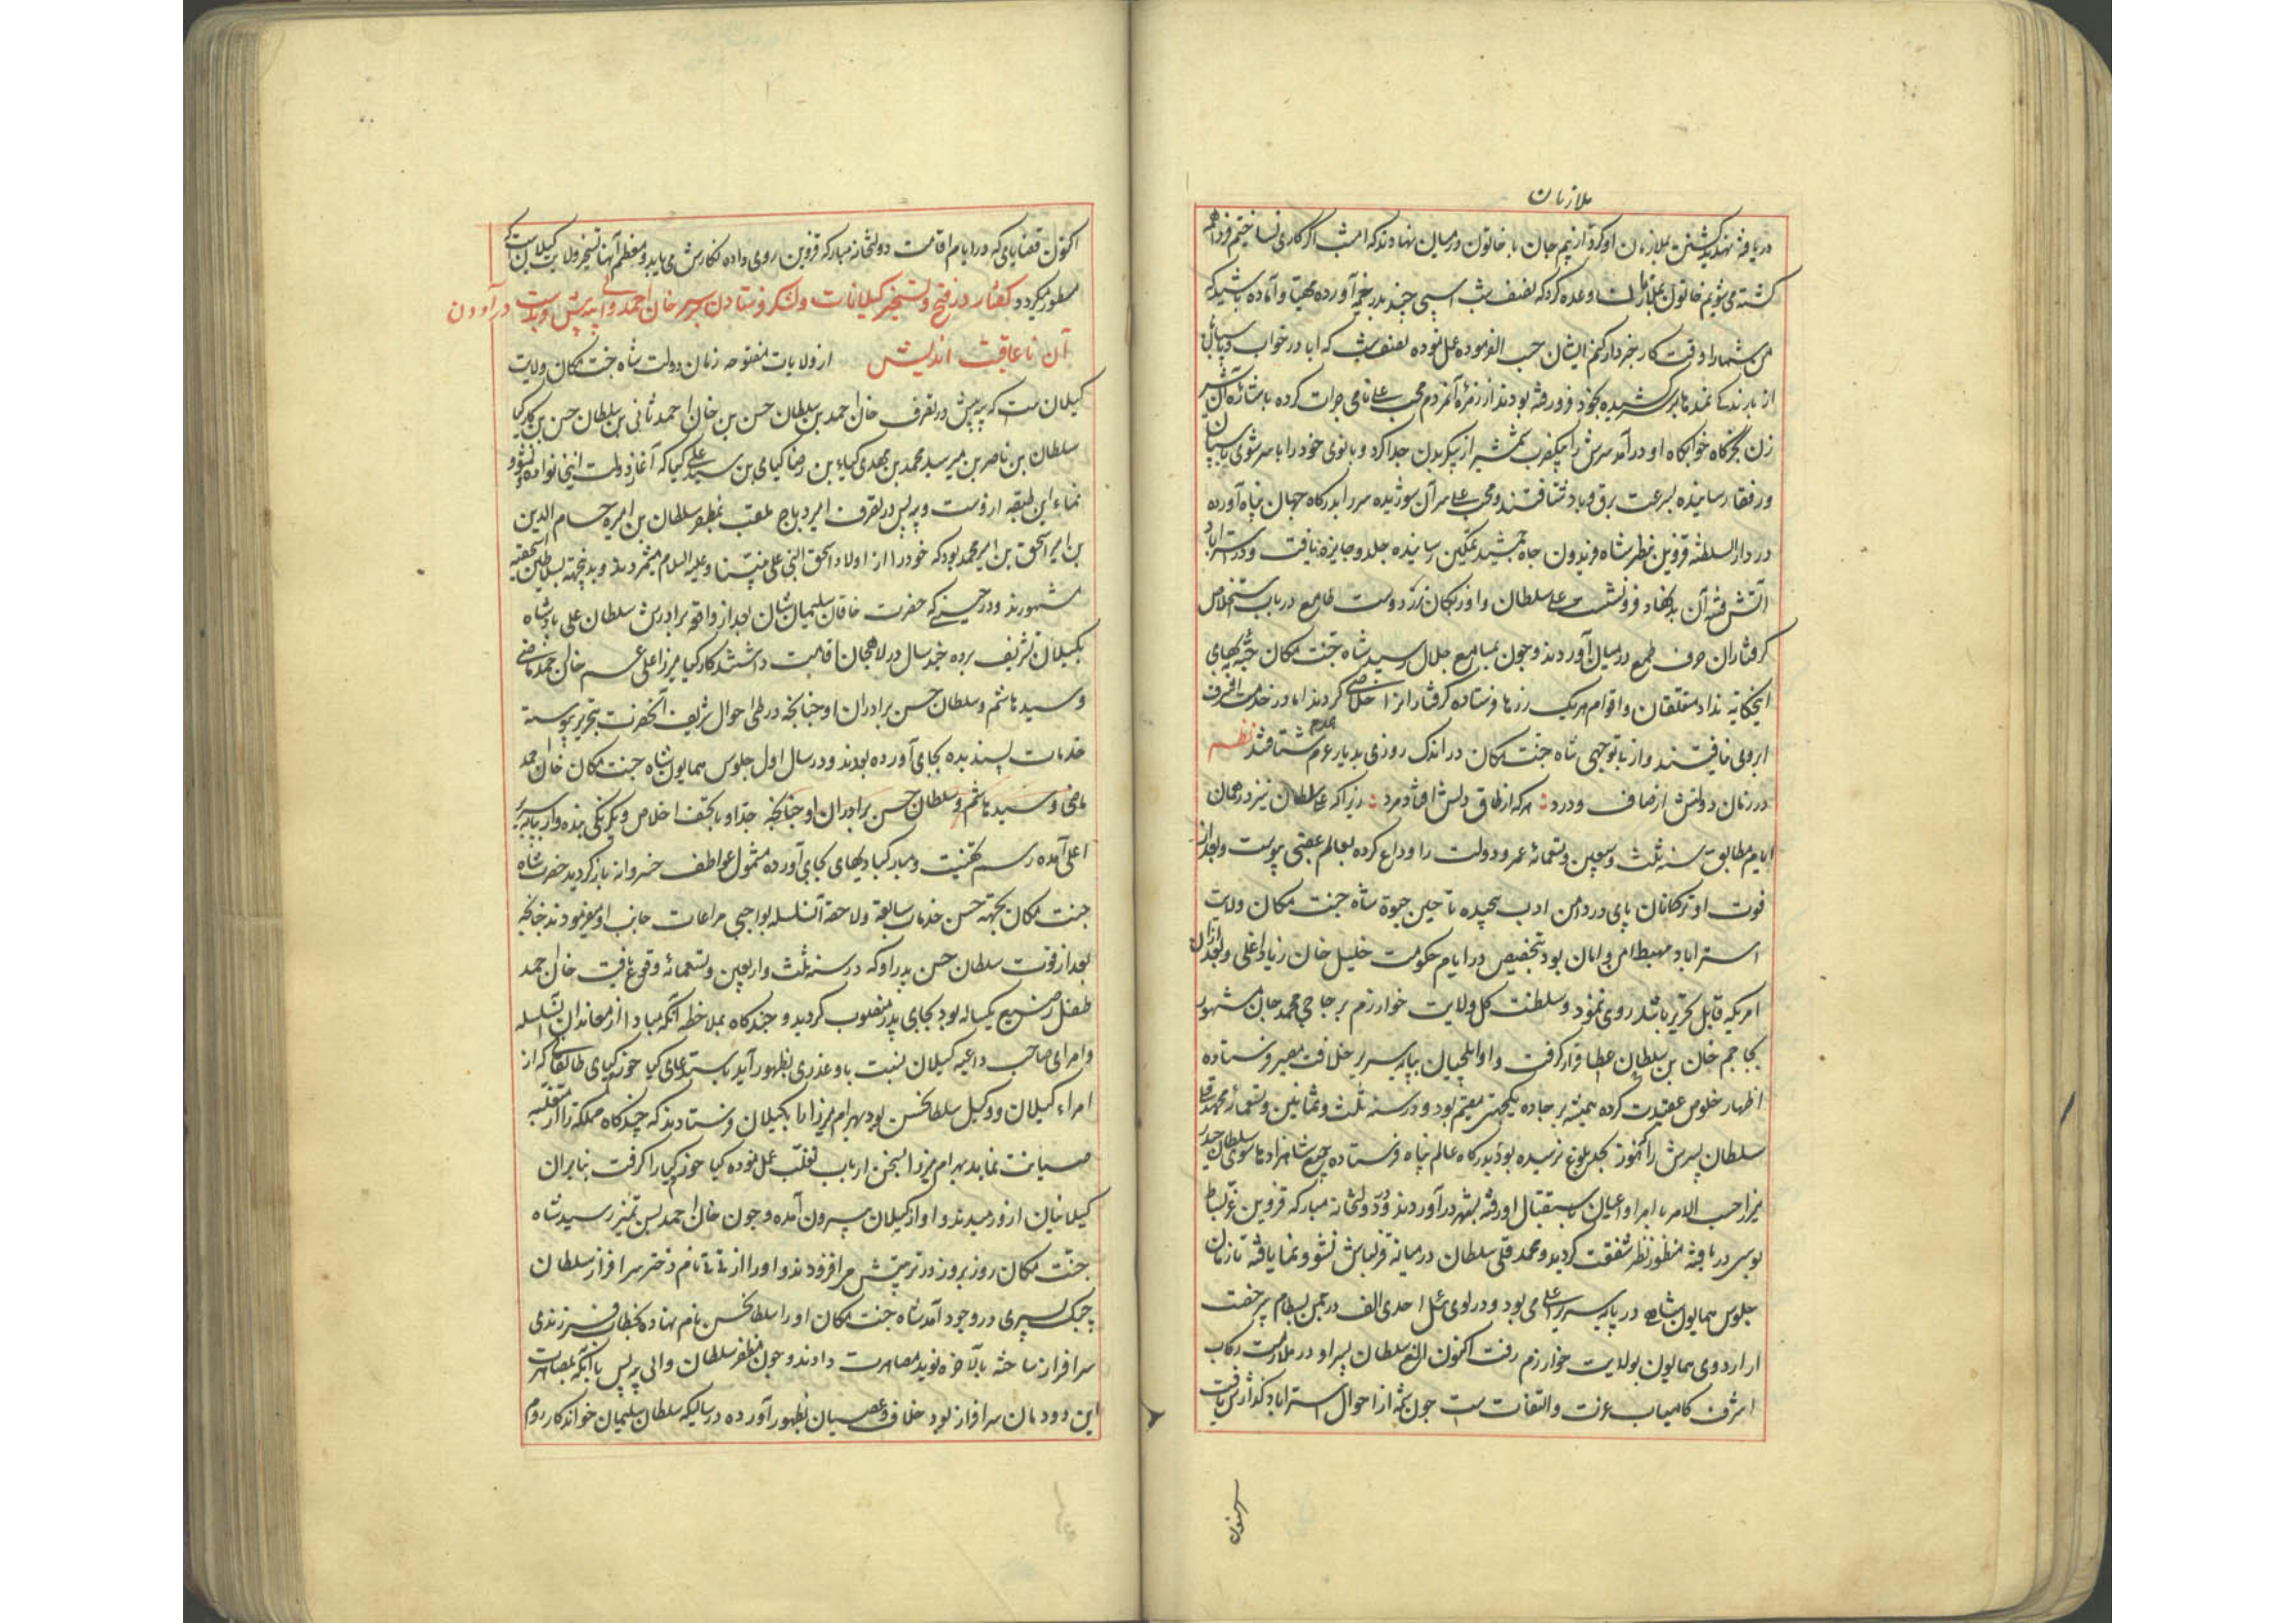 ملازمان
دریافته تهدید کشتن بملازمان او کرد از بیم جان با خاتون در میان نهادند که امشب اگر کاری نساختیم فردا همه
کشته می‌شویم خاتون بملازمان وعده کرد که نصف شب اسپی چند بدر خیمه آورده مهیا و آماده باشید که
من شما را وقت کار خبردار کنم ایشان حسب الفرموده عمل نموده نصف شب که ابا در خواب و سپاهی
از بارندگی نمدها بر سر کشیده بخود فرو رفته بودند از زمره آنمردم محب علی نامی جرات کرده باشاره آن شیر
زن بخرگاه خوابگاه او درآمد سرش را بیکضرب شمشیر از پیکر بدن جدا کرد و بانوی خود را با سر شوی بایسپان
و رفقا رسانیده بسرعت برق و باد شتافتند و محب علی سر آن شوریده سر را بدرگاه جهان پناه آورده
در دار السلطنه قزوین بنظر شاه فریدون جاه جمشید تمکین رسانیده جلدو و جایزه یافت و در استراباد
آتش فتنه آن بدنهاد فرونشست علی سلطان و اوزبکان نزد دوست طامع در باب استخلاص
گرفتاران حرف طمع در میان آوردند و چون بمسامع جلال رسید شاه جنت مکان جبه بهای
اینحکایه نداد متعلقان و اقوام هر یک زرها فرستاده گرفتاران را خلاص کردند ابا در خدمت اشرف
ابرویی نیافتند و از بی توجهی شاه جنت مکان در اندک روزی بدیار عدم شتافتند نظم
در زمان دولتش از صاف و درد هر که از طاق دلش افتاد مرد زیرا که علی سلطان نیز در همان
ایام مطابق سنه ثلث و سبعین و تسعمائه عمر و دولت را وداع کرده بعالم عقبی پیوست و بعد از
فوت او ترکمانان پای در دامن ادب پیچیده تا حین حیوة شاه جنت مکان ولایت
استراباد مهبط امن و امان بود بتخصیص در ایام حکومت خلیل خان زیاد اغلی و بعد از آن
امریکه قابل تحریر باشد روی ننمود و سلطنت کل ولایت خوارزم بر حاجی محمد خان مشهور
بحاجم خان بن سلطان عطا قرار گرفت و او ایلچیان بپایه سریر خلافت مصیر فرستاده
اظهار خلوص عقیدت کرده همیشه بر جاده یکجهتی مقیم بود و در سنه ثلث و ثمانین و تسعمائه محمد قلی
سلطان پسرش را که هنوز بحد بلوغ نرسیده بود بدرگاه عالم پناه فرستاده جمیع شاهزادها سوی سلطان حیدر
میرزا حسب الامر با امرا و اعیان باستقبال او رفته بشهر درآوردند و در دولتخانه مبارکه قزوین عز بساط
بوسی دریافته منظور نظر شفقت گردید و محمد قلی سلطان در میانه قزلباش نشو و نما یافته تا زمان
جلوس همایون شاهی در پایه سریر اعلی می بود و در لوی ئیل احدی الف در چمن بسطام بی رخصت
از اردوی همایون بولایت خوارزم رفت اکنون النغ سلطان پسر او در ملازمت رکاب
اشرف کامیاب عزت و التفات ست چون شمه از احوال استراباد گذارش یافت
اکنون قضایایی که در ایام اقامت دولتخانه مبارکه قزوین روی داده نگارش می یابد و معظم آنها تسخیر ولایت گیلانست که
مسطور میگردد گفتار در فتح و تسخیر گیلانات و لشکر فرستادن بر سر خان احمد والی بیه پیش و بدست درآوردن
آن ناعاقبت اندیش از ولایات مفتوحه زمان دولت شاه جنت مکان ولایت
گیلان ست که بیه پیش در تصرف خان احمد بن سلطان حسن بن خان احمد ثانی بن سلطان حسن بن کارکیا
سلطان بن ناصر بن میر سید محمد بن مهدی کیا بن رضا کیا بن سید علی کیا که آغاز دولت اینخانواده و نشو و
نماء این طبقه ازوست و بیه پس در تصرف امیره دباج ملقب بمظفر سلطان بن امیره حسام الدین
بن امیره اسحق بن امیره محمد بود که خود را از اولاد اسحق النبی علی نبینا و علیه السلام میشمردند و بدینجهته بسلاطین اسحقیه
مشهورند و در حینی که حضرت خاقان سلیمان شان بعد از واقعه برادرش سلطان علی پادشاه
بگیلان تشریف برده چند سال در لاهجان اقامت داشتند کارکیا میرزا علی عم خان احمد ماضی
و سید هاشم و سلطان حسن برادران او چنانچه در طی احوال شریف آنحضرت بتحریر پیوسته
خدمات پسندیده بجای آورده بودند و در سال اول جلوس همایون شاه جنت مکان خان احمد
ماضی و سید هاشم و سلطان حسن برادران او چنانچه جدا و با تحف اخلاص و یکرنگی بنده وار بپایه سریر
اعلی آمده رسم تهنیت و مبارکبادیهای بجای آورده مشمول عواطف خسروانه بازگردید حضرت شاه
جنت مکان بجهته حسن خدمات سابقه و لاحقه آنسلسله بواجبی مراعات جانب او میفرمودند چنانچه
بعد از فوت سلطان حسن پدر او که در سنه ثلث و اربعین و تسعمائه وقوع یافت خان احمد
طفل رضیع یکساله بود بجای پدر منصوب گردید و چندگاه بملاحظه آنکه مبادا از معاندان آنسلسله
و امرای صاحب داعیه گیلان نسبت باو عذری بظهور آید باستدعای کیا خورکیای طالقانی که از
امراء گیلان و وکیل سلطانحسن بود بهرام میرزا را بگیلان فرستادند که چندگاه مملکة را از متغلبه
صیانت نماید بهرام میرزا بسخن ارباب تغلب عمل نموده کیا خورکیا را گرفت بنابران
گیلانیان ازو رمیدند و او از گیلان بیرون آمده و چون خان احمد بسن تمیز رسید شاه
جنت مکان روز بروز در تربیتش می افزودند و او را از تی تی نام دختر سرافراز سلطان
چپک پسری در وجود آمد شاه جنت مکان او را سلطانحسن نام نهاده بخطاب فرزندی
سرافراز ساخته بالاخره نوید مصاهرت دادند و چون مظفر سلطان والی بیه پس با آنکه بمصاهرت
این دودمان سرافراز بود خلاف و عصیان بظهور آورده در سالیکه سلطان سلیمان خواندکار روم